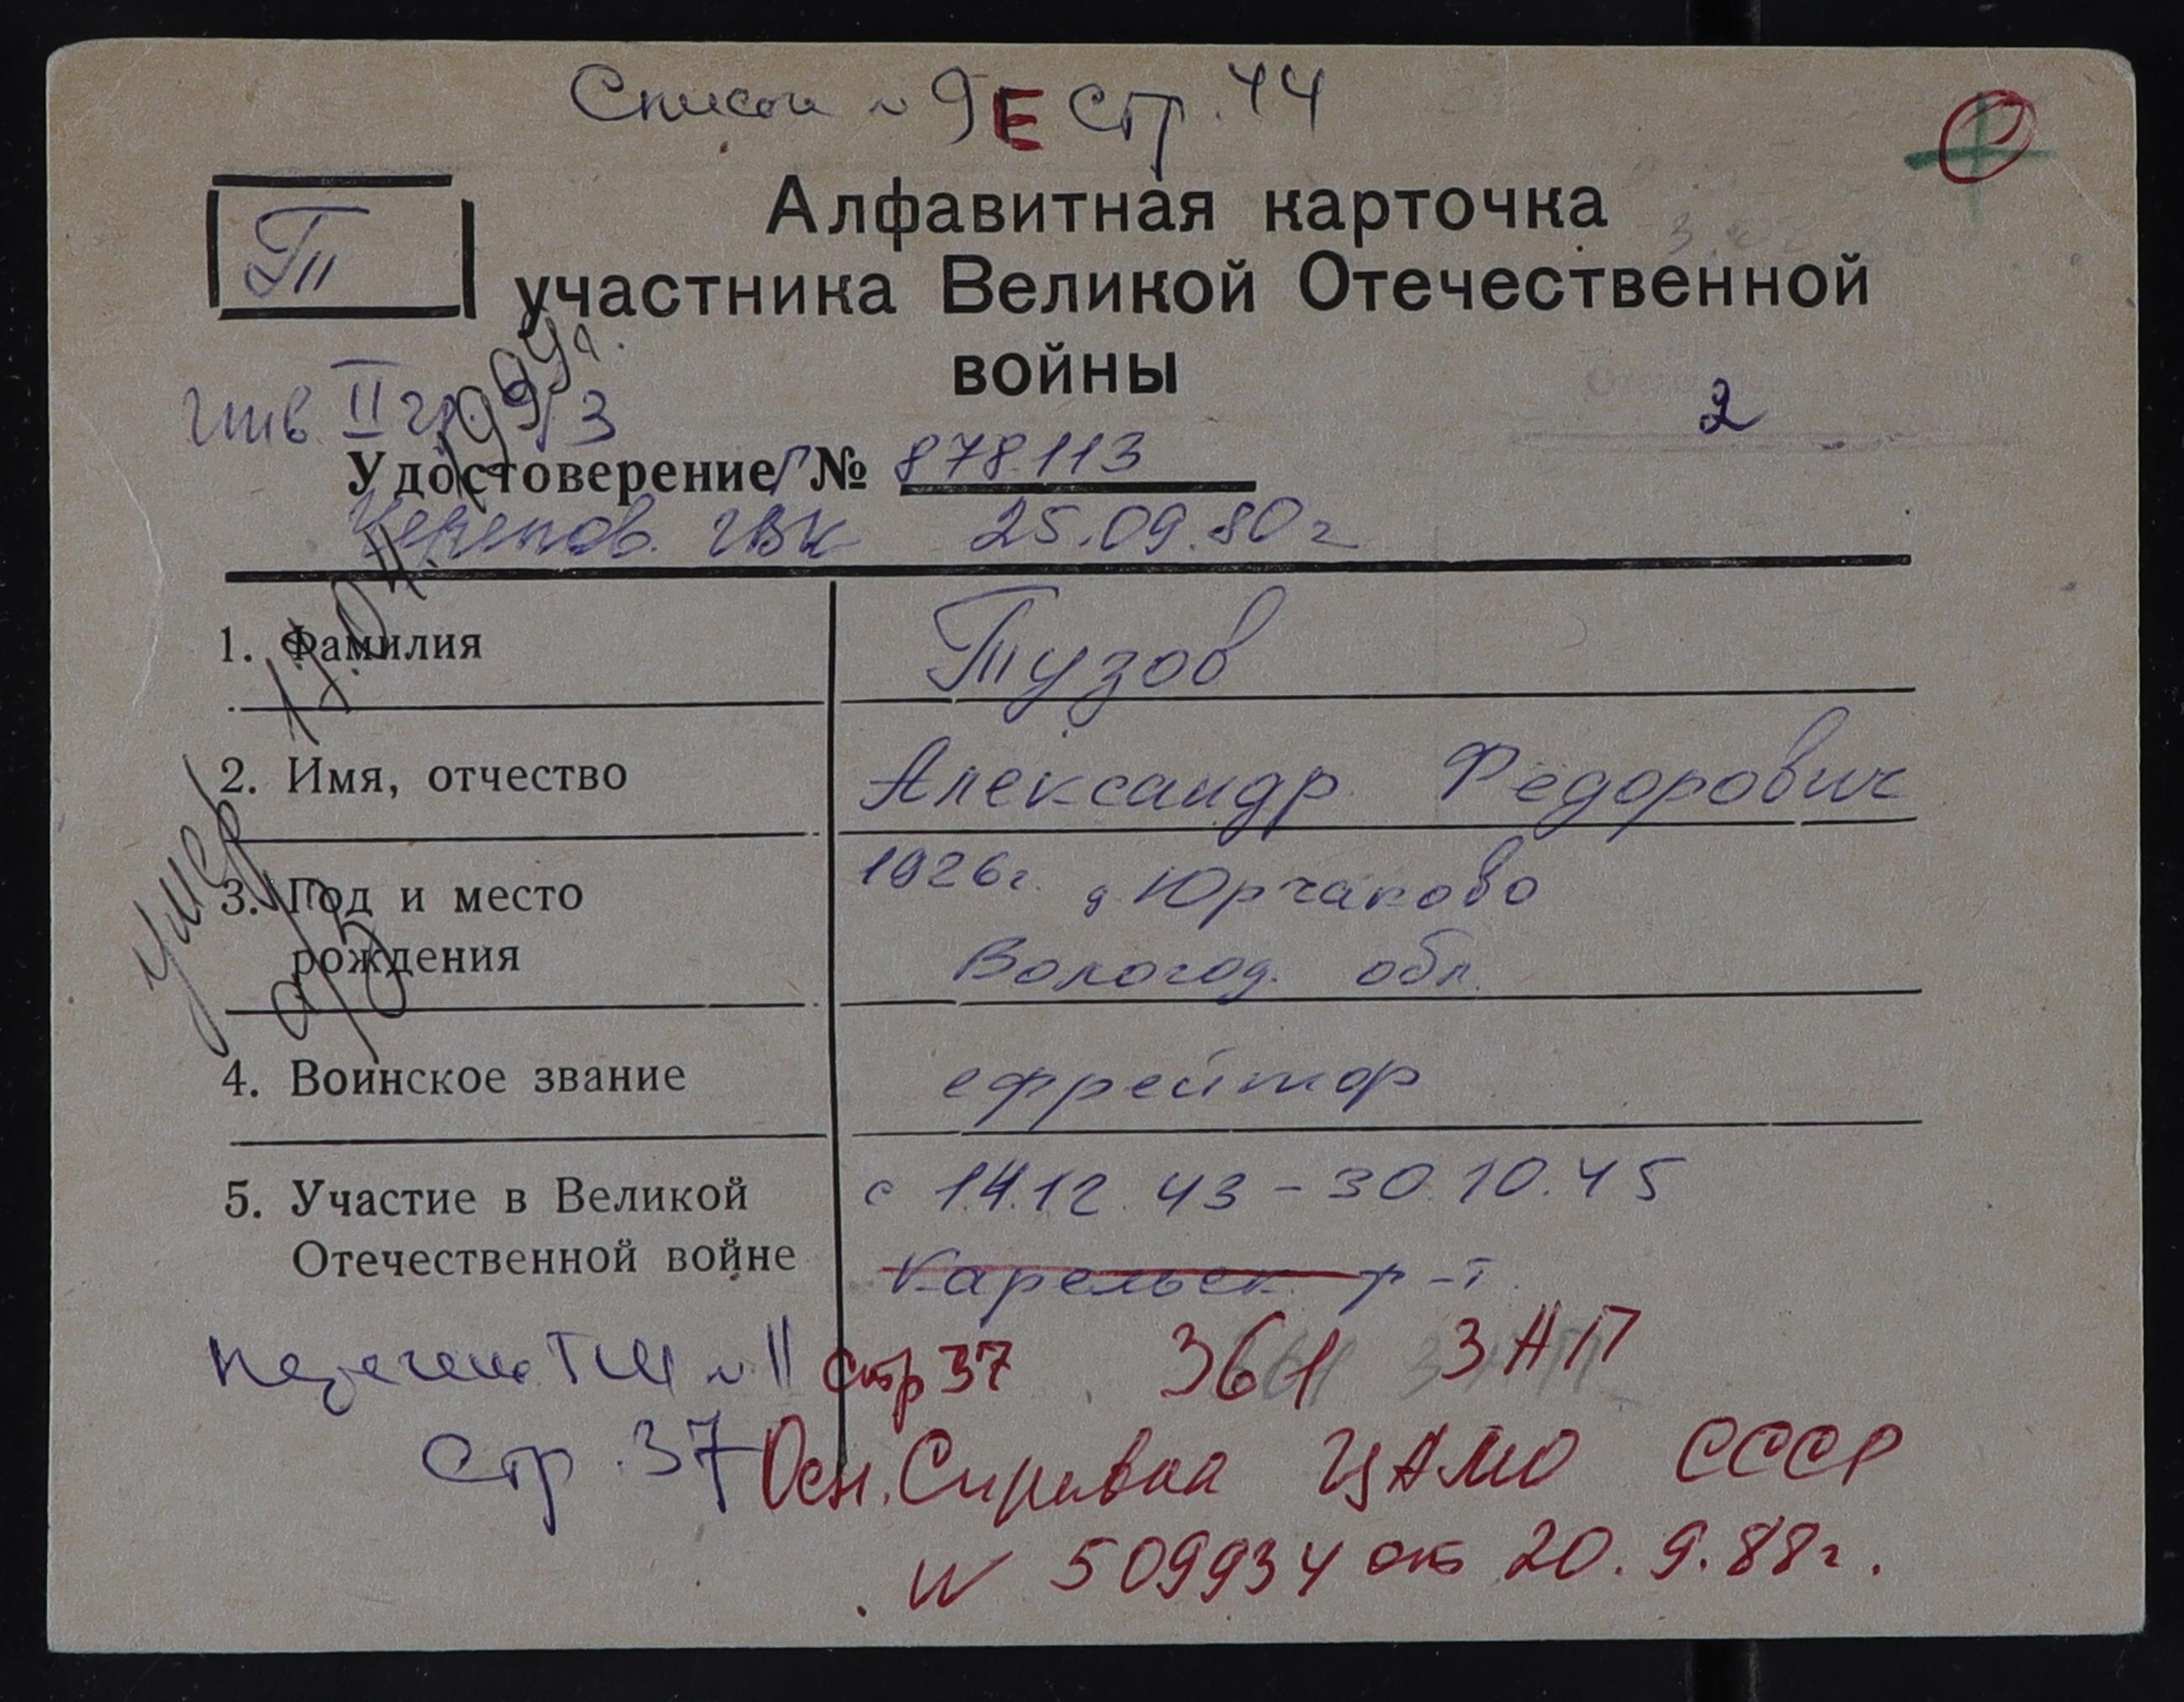 Список № 9Е стр. 44
Т
Алфавитная карточка
участника Великой Отечественной
войны
инв. II гр
2
Удостоверение Г № 878113
Черепов. ГВК 25.09.80 г
1. Фамилия
Тузов
2. Имя, отчество
Александр Фёдорович
3. Год и место
рождения
1926г. д. Юрчаково
Вологод. обл.
4. Воинское звание
ефрейтор
5. Участие в Великой
Отечественной войне
с 14.12.43 – 30.10.45
Карельск. р-т.
перечень ГШ № 11 стр 37 361 ЗАП
стр. 37 Осн. Справка ЦАМО СССР
№ 509934 от 20.9.88г.
умер